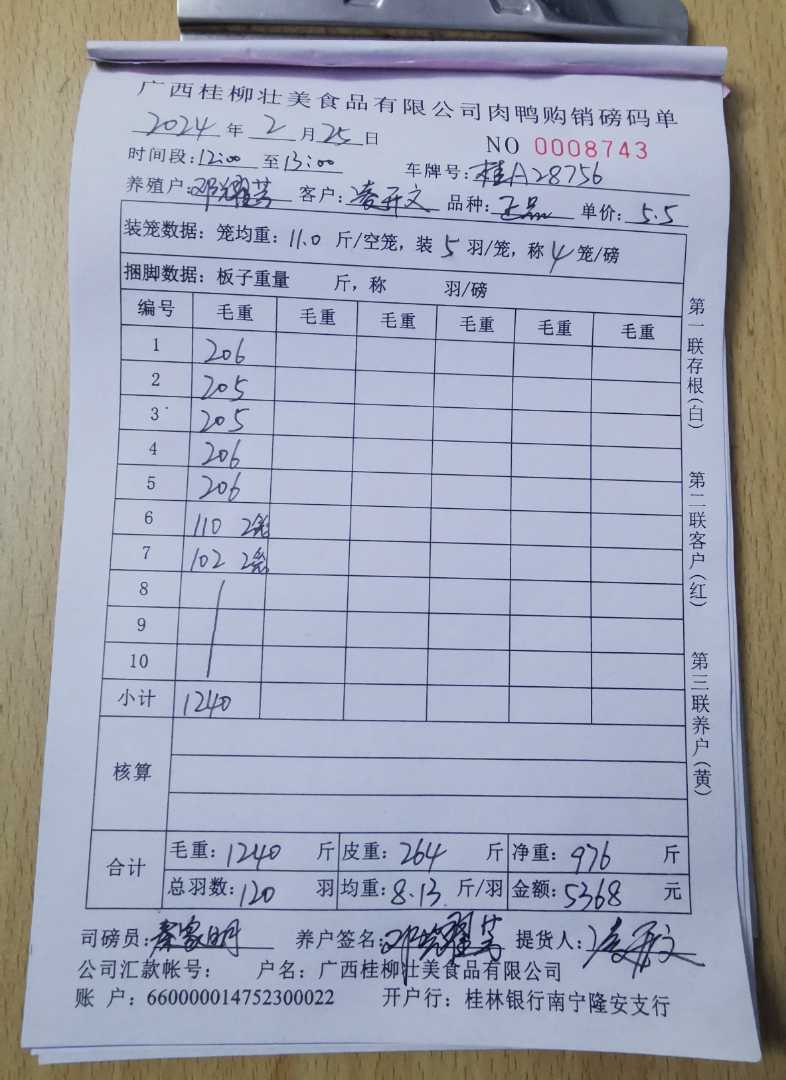 广西桂柳壮美食品有限公司肉鸭购销磅码单
2024 年 2 月 25 日 NO 0008743
时间段:12:00 至 13:00 车牌号:桂A28756
养殖户:邓耀芳 客户:凌开文 品种:正品 单价:5.5
装笼数据:笼均重:11.0 斤/空笼,装 5 羽/笼,称 4 笼/磅
捆脚数据:板子重量 斤,称 羽/磅
编号 毛重 毛重 毛重 毛重 毛重 毛重
1 206
2 205
3 205
4 206
5 206
6 110 2笼
7 102 2笼
8
9
10
小计 1240
核算
合计 毛重:1240 斤 皮重:264 斤 净重:976 斤
总羽数:120 羽 均重:8.13 斤/羽 金额:5368 元
司磅员:秦家明 养户签名: 提货人:凌开文
公司汇款帐号: 户名:广西桂柳壮美食品有限公司
账 户:660000014752300022 开户行:桂林银行南宁隆安支行
第一联存根(白) 第二联客户(红) 第三联养户(黄)